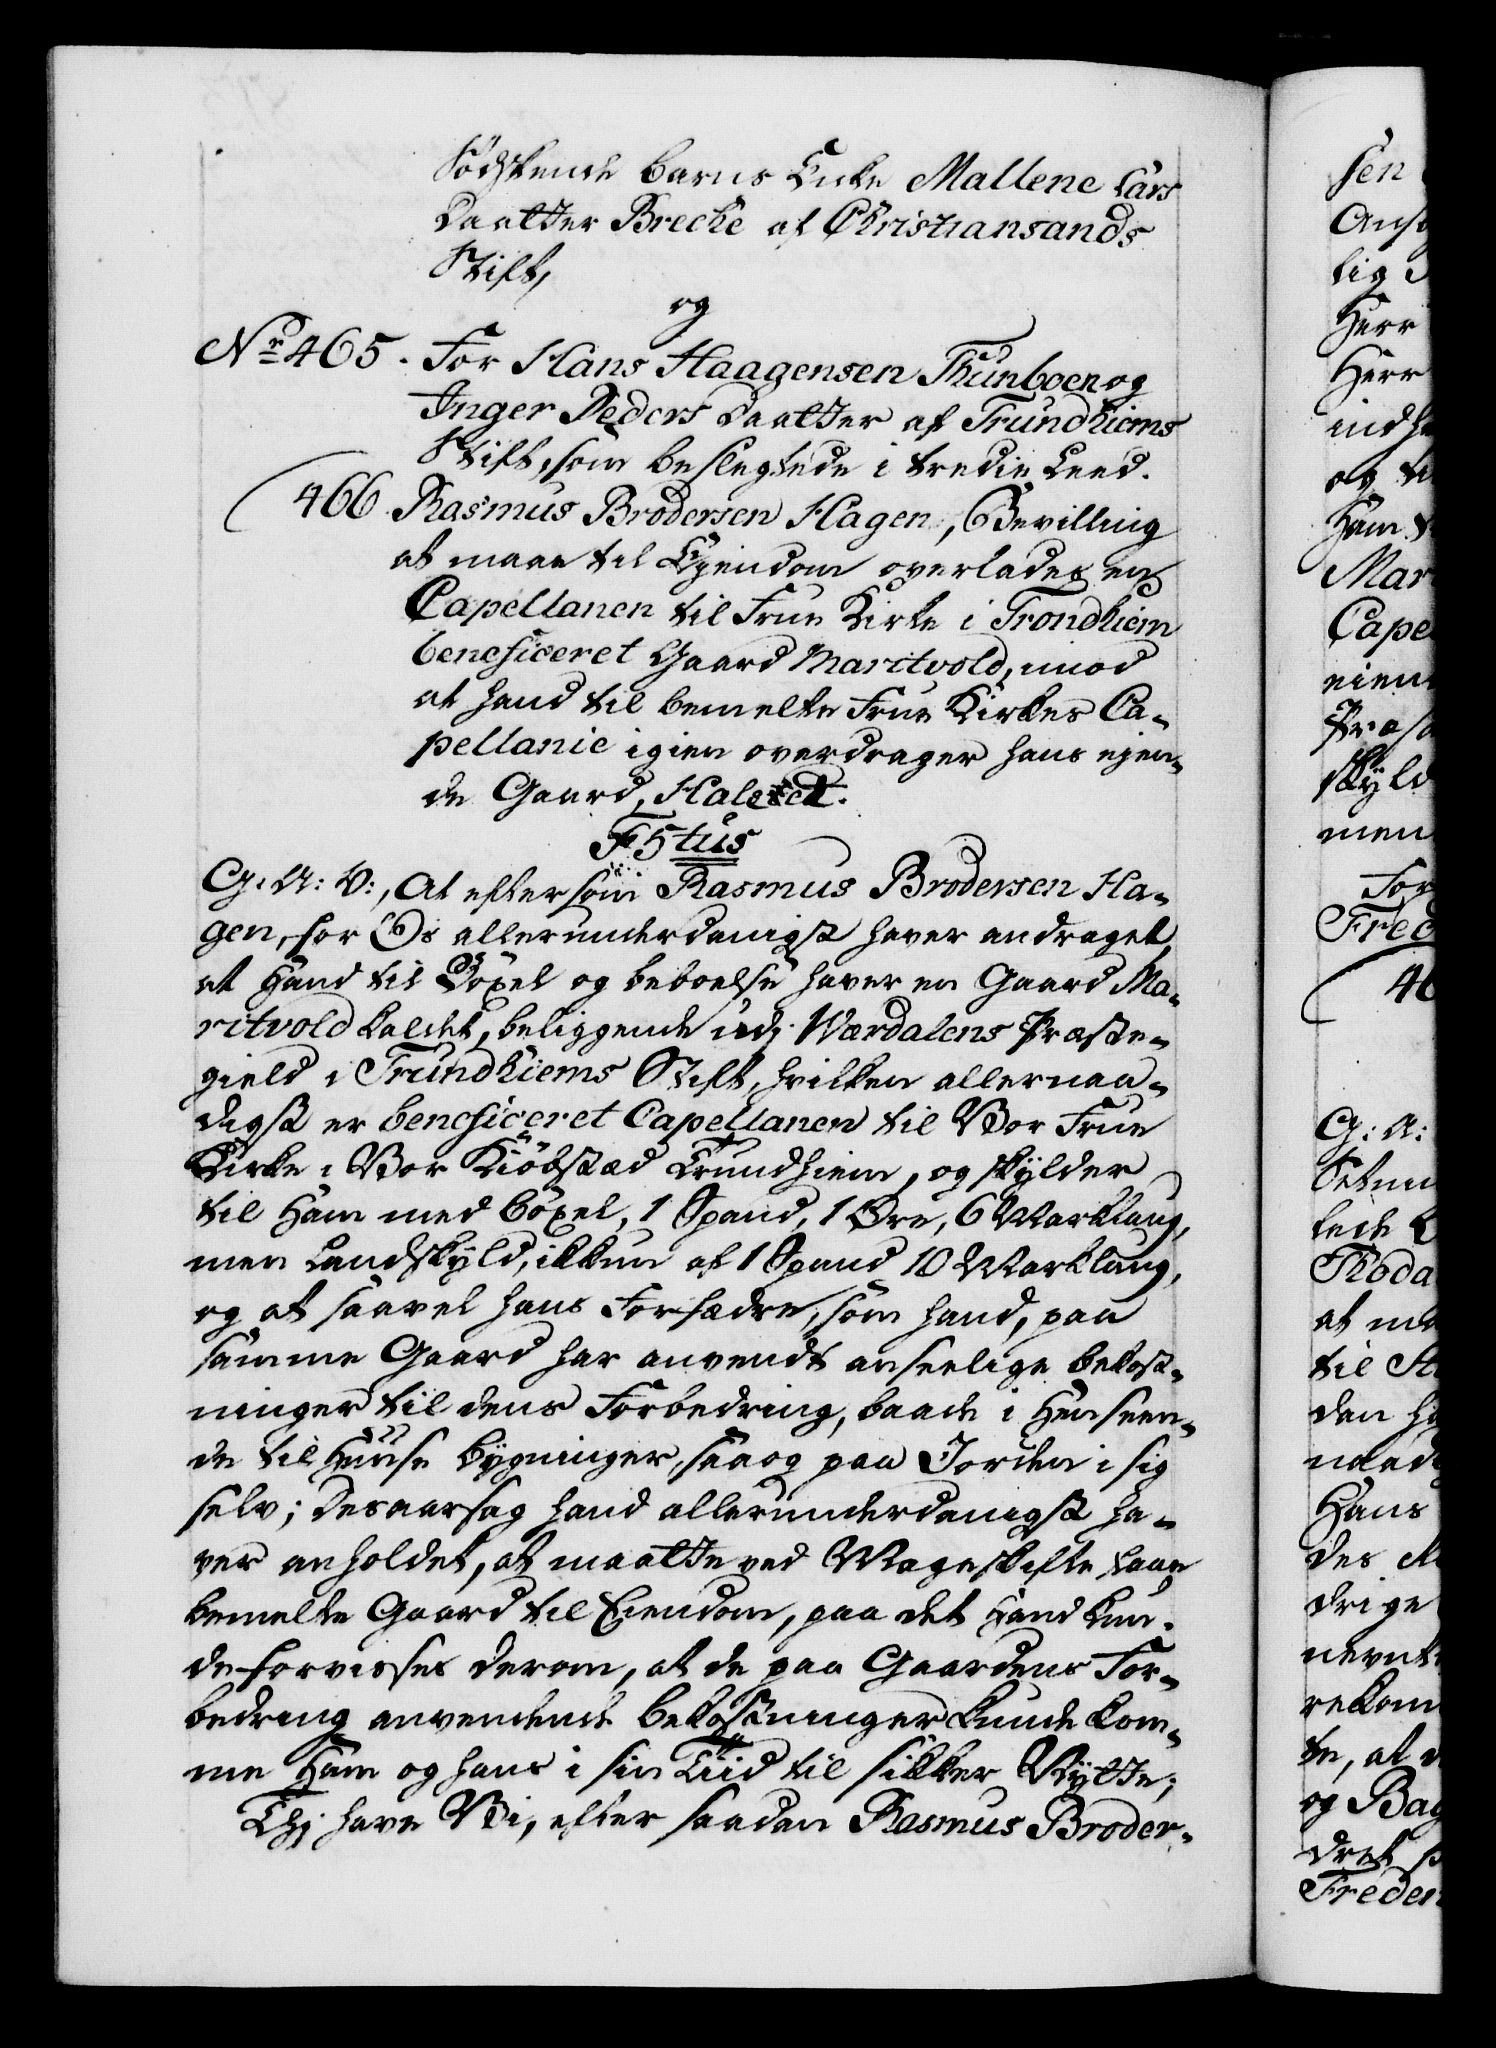 Södskende barns Enke Mallene Lars
Daatter Breche af Christiansands
Stift,
og
No 465. For Hans Haagensen Thunboen og
Inger Peders Daatter af Trundhiems
Stift, som beslegtede i tredie Leed.
466. Rasmus Brodersen Hagen, Bevilling
at maae til Ejendom overlades en
Capellanen til Frue Kirke i Trondhiem
beneficeret Gaard Maritvold, imod
at hand til bemelte Frue Kirkes Ca-
pellanie igien overdrager hans ejen-
de Gaard, Halset.
F 5tus
G: A: V:, At eftersom Rasmus Brodersen Ha-
gen, for Os allerunderdanigst haver andraget,
at Hand til Böxel og beboelse haver en Gaard Ma-
ritvold kaldet, beliggende udj Værdalens Præste-
gield i Trundhiems Stift, hvilken allernaa-
digst er beneficeret Capellanen til Vor Frue
Kirke i Vor Kiöbstæd Trundhiem, og skylder
til Ham med böxel, 1 Spand, 1 Øre, 6 Marklaug,
men Landskyld, ikkun af 1 Spand 10 Marklaug,
og at saavel hans Forfædre, som hand, paa
samme Gaard har anvendt anseelige bekost-
ninger til dens Forbedring, baade i Henseen-
de til Huuse bygninger, saa og paa Jorden i sig
selv; Desaarsag hand allerunderdanigst ha-
ver anholdet, at maatte ved Mageskifte faae
bemelte Gaard til Eiendom, paa det Hand kun-
de forvisses derom, at de paa Gaardens For-
bedring anvendende bekostninger kunde kom-
me Ham og hans i sin Tiid til sikker Nytte;
Thj have Vi, efter saadan Rasmus Broder-